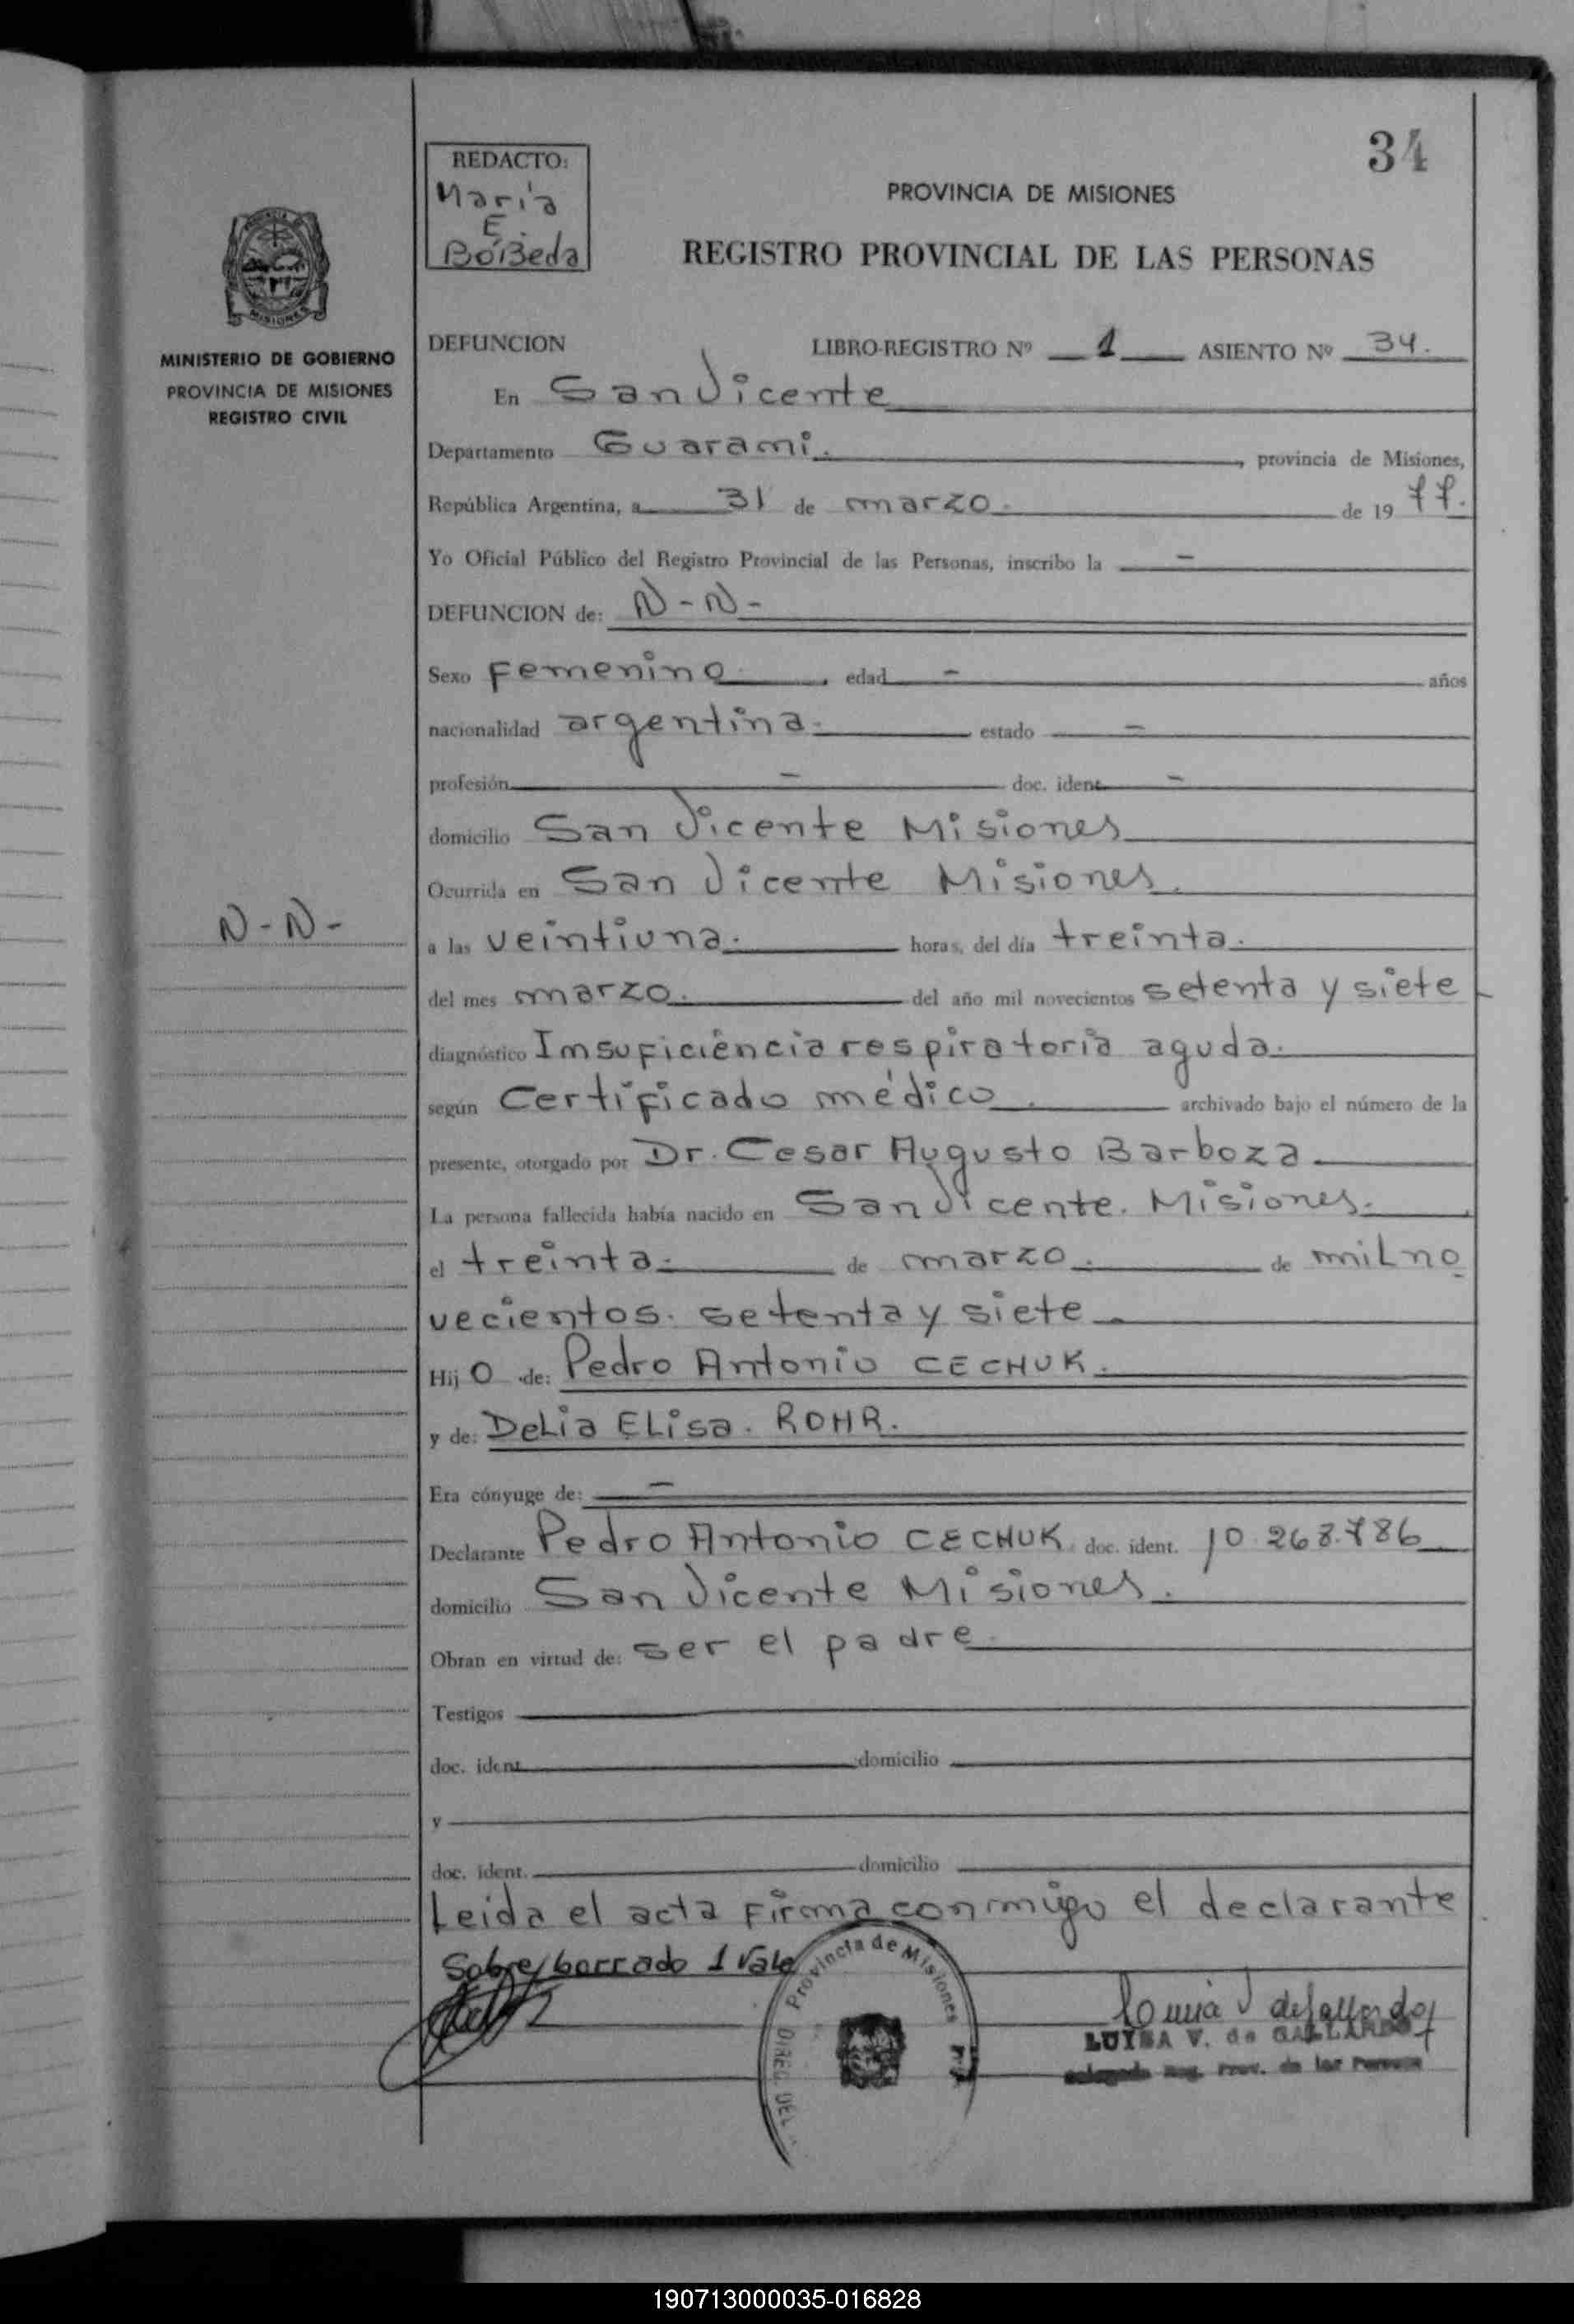 34
REDACTO:
Maria
E.
BoiBeda
PROVINCIA DE MISIONES
REGISTRO PROVINCIAL DE LAS PERSONAS
MISIONES
MINISTERIO DE GOBIERNO
PROVINCIA DE MISIONES
REGISTRO CIVIL
DEFUNCION LIBRO-REGISTRO Nº 1 ASIENTO Nº 34.
En San Vicente
Departamento Guarami. , provincia de Misiones,
República Argentina, a 31 de marzo. de 1977.
Yo Oficial Público del Registro Provincial de las Personas, inscribo la -
DEFUNCION de: N-N-
Sexo Femenino , edad - años
nacionalidad argentina. estado -
profesión - doc. ident. -
domicilio San Vicente Misiones
Ocurrida en San Vicente Misiones.
N-N-
a las veintiuna. horas, del día treinta.
del mes marzo. del año mil novecientos setenta y siete
diagnóstico Imsuficiencia respiratoria aguda.
según Certificado médico. archivado bajo el número de la
presente, otorgado por Dr. Cesar Augusto Barboza
La persona fallecida había nacido en San Vicente. Misiones.
el treinta. de marzo. de milno
vecientos. setenta y siete
Hij O de: Pedro Antonio CECHUK.
y de: Delia Elisa. ROHR.
Era cónyuge de: -
Declarante Pedro Antonio CECHUK. doc. ident. 10.268.786
domicilio San Vicente Misiones.
Obran en virtud de: ser el padre.
Testigos
doc. ident. domicilio
y
doc. ident. domicilio
Leida el acta firma conmigo el declarante
Sobre/borrado 1 Vale
Provincia de Misiones
DIREC. DEL
LUISA V. de GALLARDO
Reg. Prov. de las Personas
190713000035-016828